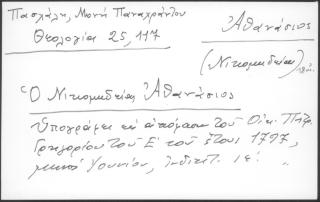 Πασχάλη, Μονή Παναχράντου
Θεολογία 25, 117
Ἀθανάσιος
(Νικομηδείας)
Ὁ Νικομηδείας Ἀθανάσιος
Ὑπογράφει εἰς ἀπόφασιν τοῦ Οἰκ. Πατρ.
Γρηγορίου τοῦ Ε΄ τοῦ ἔτους 1797,
μηνὸς Ἰουνίου, ἰνδικτ. ιε΄.